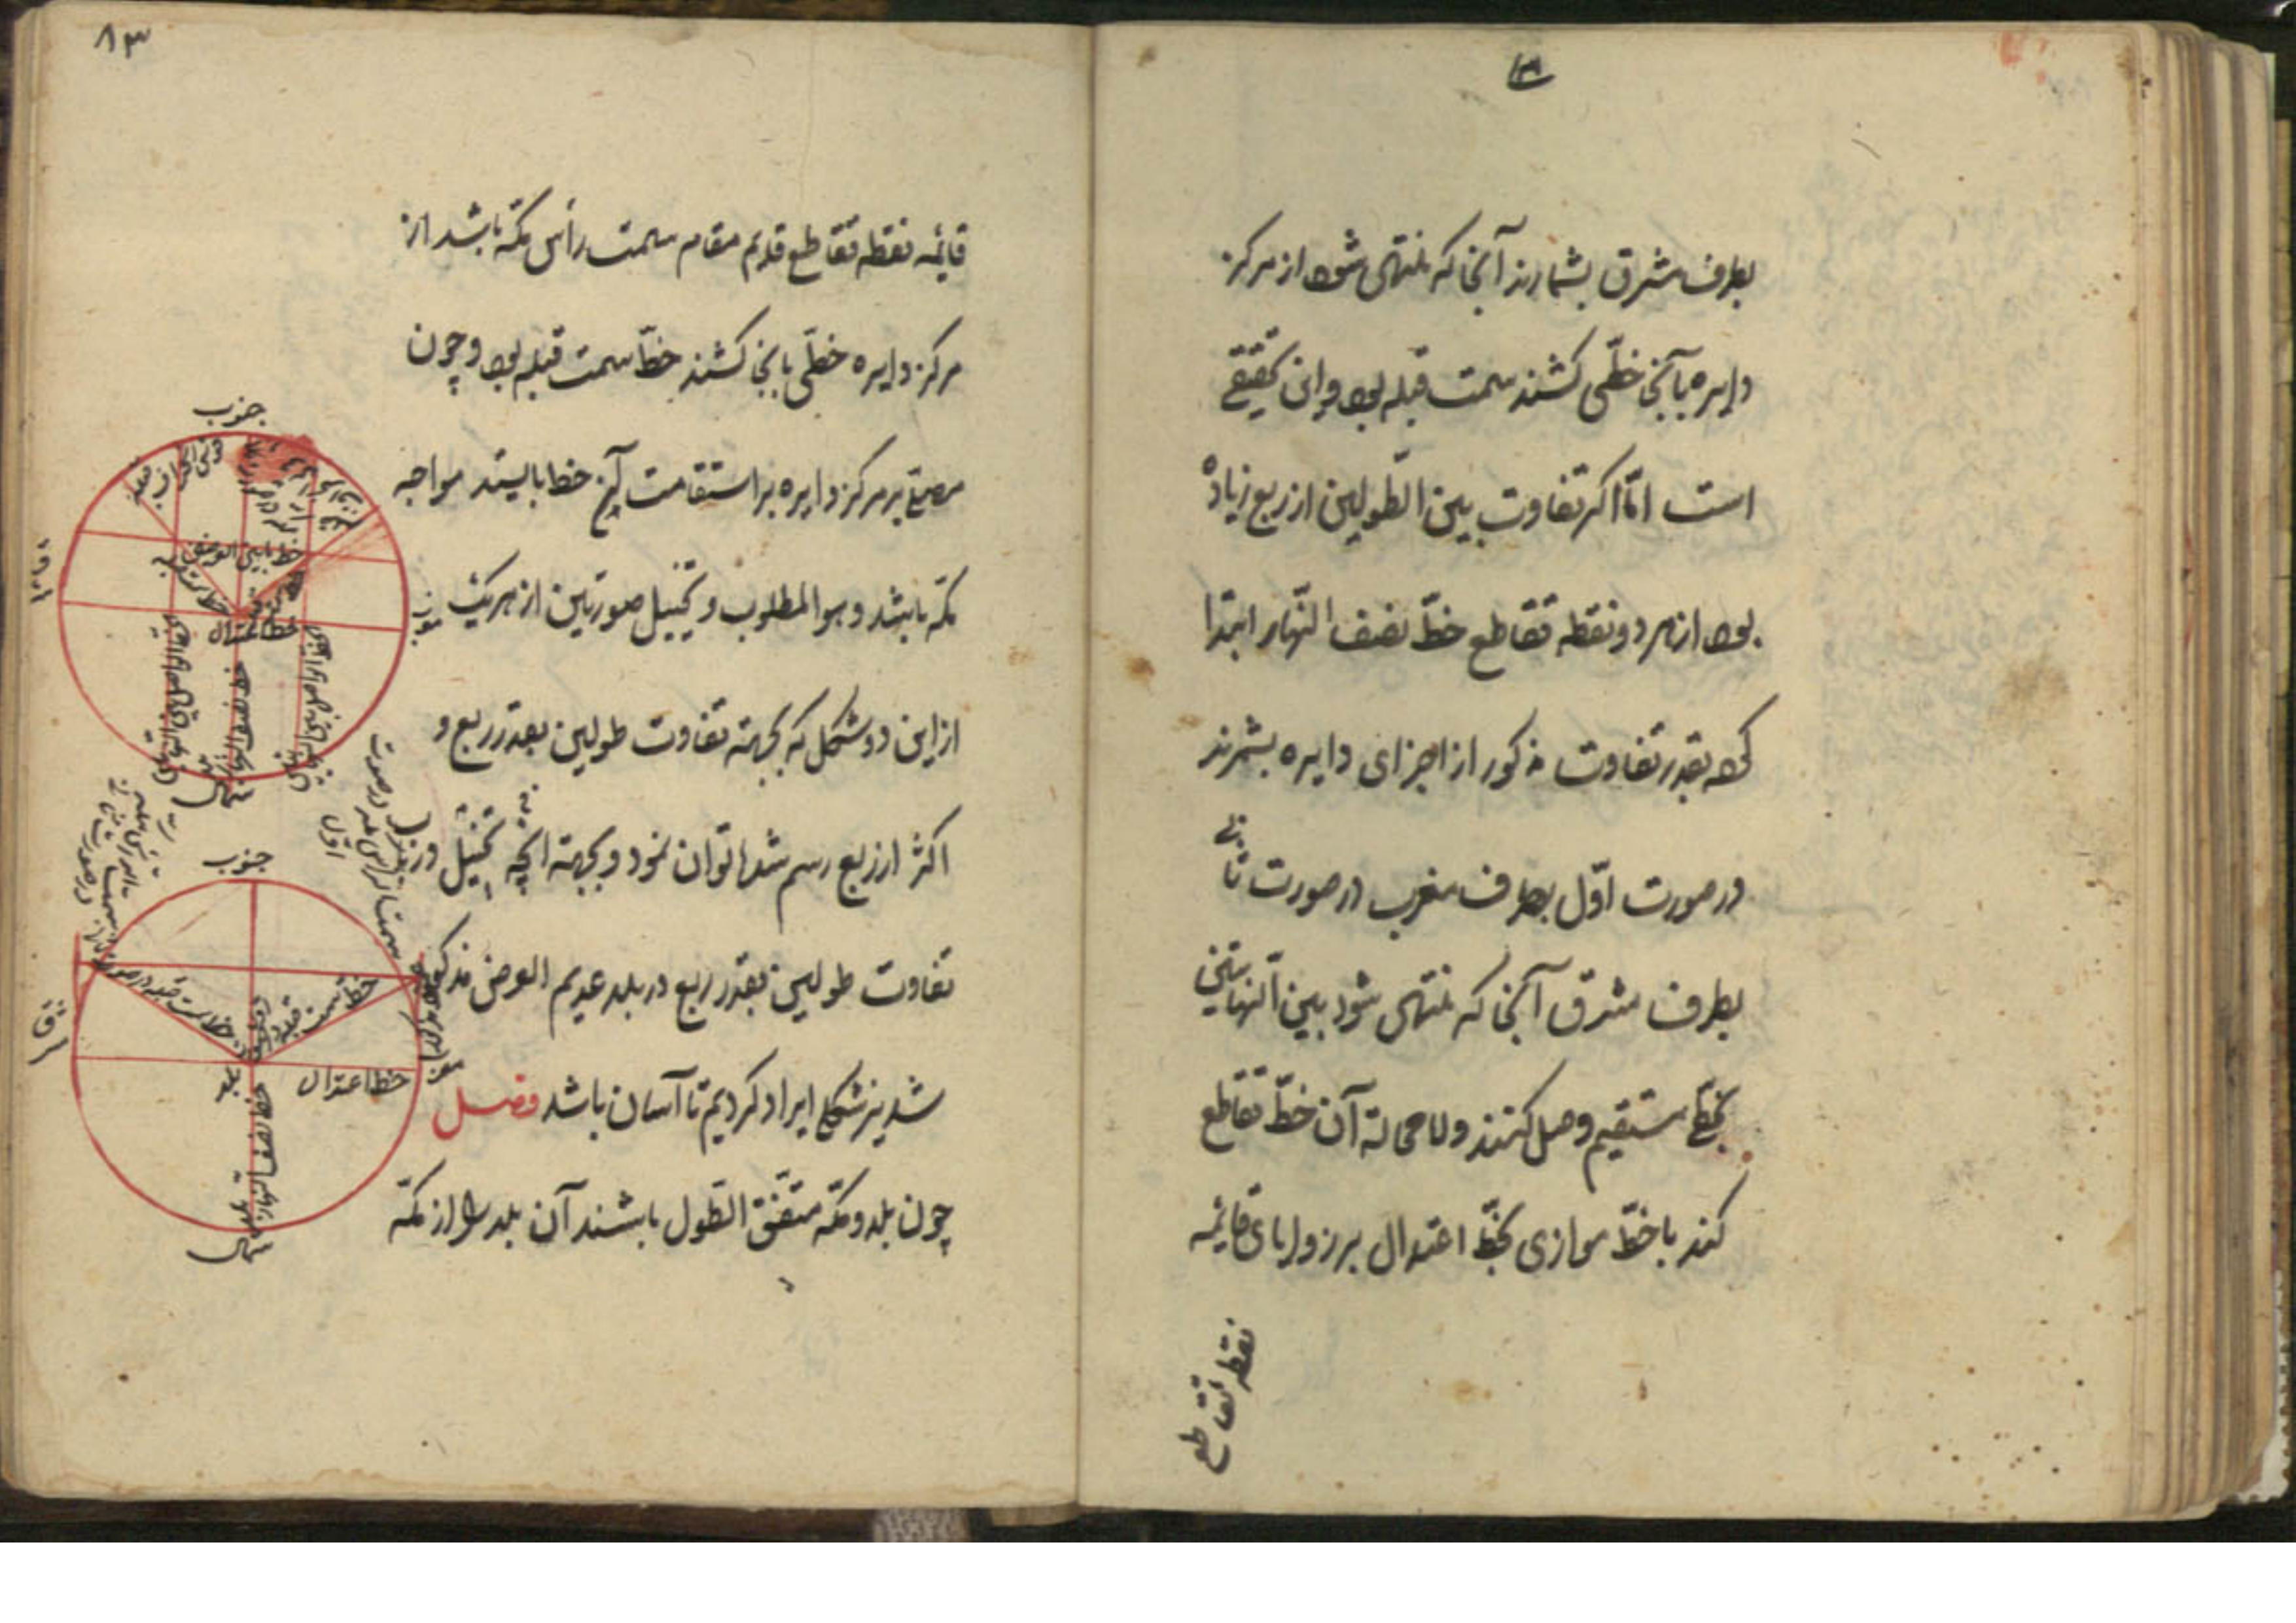 بطرف مشرق بشمارند آنجا که منتهی شود از مرکز
دایره بآنجا خطّی کشند سمت قبله بود و این تحقیقے
است امّا اکر تفاوت بین الطّولین از ربع زیاده
بود از هر دو نقطه تقاطع خطّ نصف النّهار ابتدا
کرده بقدر تفاوت مذکور از اجزای دایره بشمرند
در صورت اوّل بطرف مغرب در صورت ثانی
بطرف مشرق آنجا که منتهی شود بین النّهایتین
بخطّ مستقیم وصل کنند و لا محالة آن خطّ تقاطع
کند با خطّ موازی بخطّ اعتدال بر زوایای قایمه
نقطه تقاطع
۸۳
قایمه نقطه تقاطع قدیم مقام سمت رأس مکّه باشد از
مرکز دایره خطّی بانجا کشند خطّ سمت قبله بود و چون
مصلّی بر مرکز دایره بر استقامت این خط بایستد مواجه
مکّه باشد و هو المطلوب و تخییل صورتین از هر یک
از این دو شکل که بجهته تفاوت طولین بقدر ربع و
اکثر از ربع رسم شد توان نمود و بجهته آنچه تخییل در
تفاوت طولین بقدر ربع در بلد عدیم العرض مذکور
شد نیز شکلی ایراد کردیم تا آسان باشد فصل
چون بلد و مکّه متّفق الطّول باشند آن بلد را از مکّه
جنوب
قوس انحراف قبله
خط مابین العرضین
خط اعتدال
شمال
در صورت
اوّل
جنوب
خط سمت قبله
خط سمت قبله در صورت
خط اعتدال
بلد
خط نصف النهار
شرق
شمال